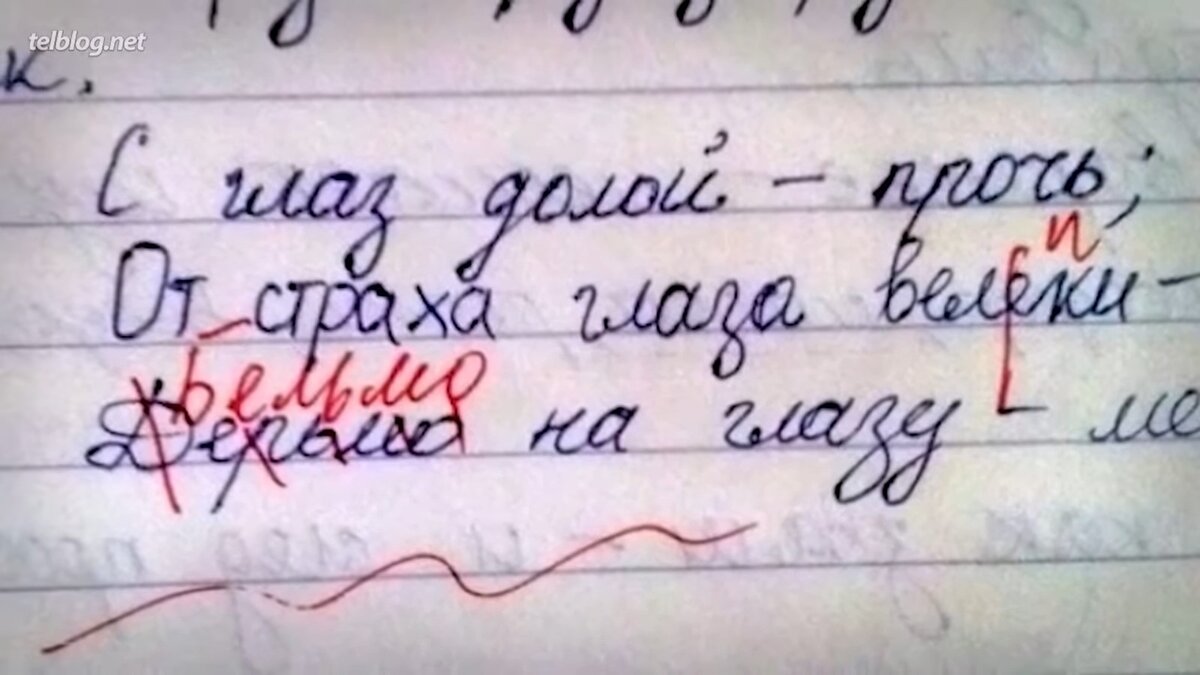 telblog.net
к.
С глаз долой – прочь;
п
От страха глаза велеки –
Бельмо
Дерьмо на глазу – ме